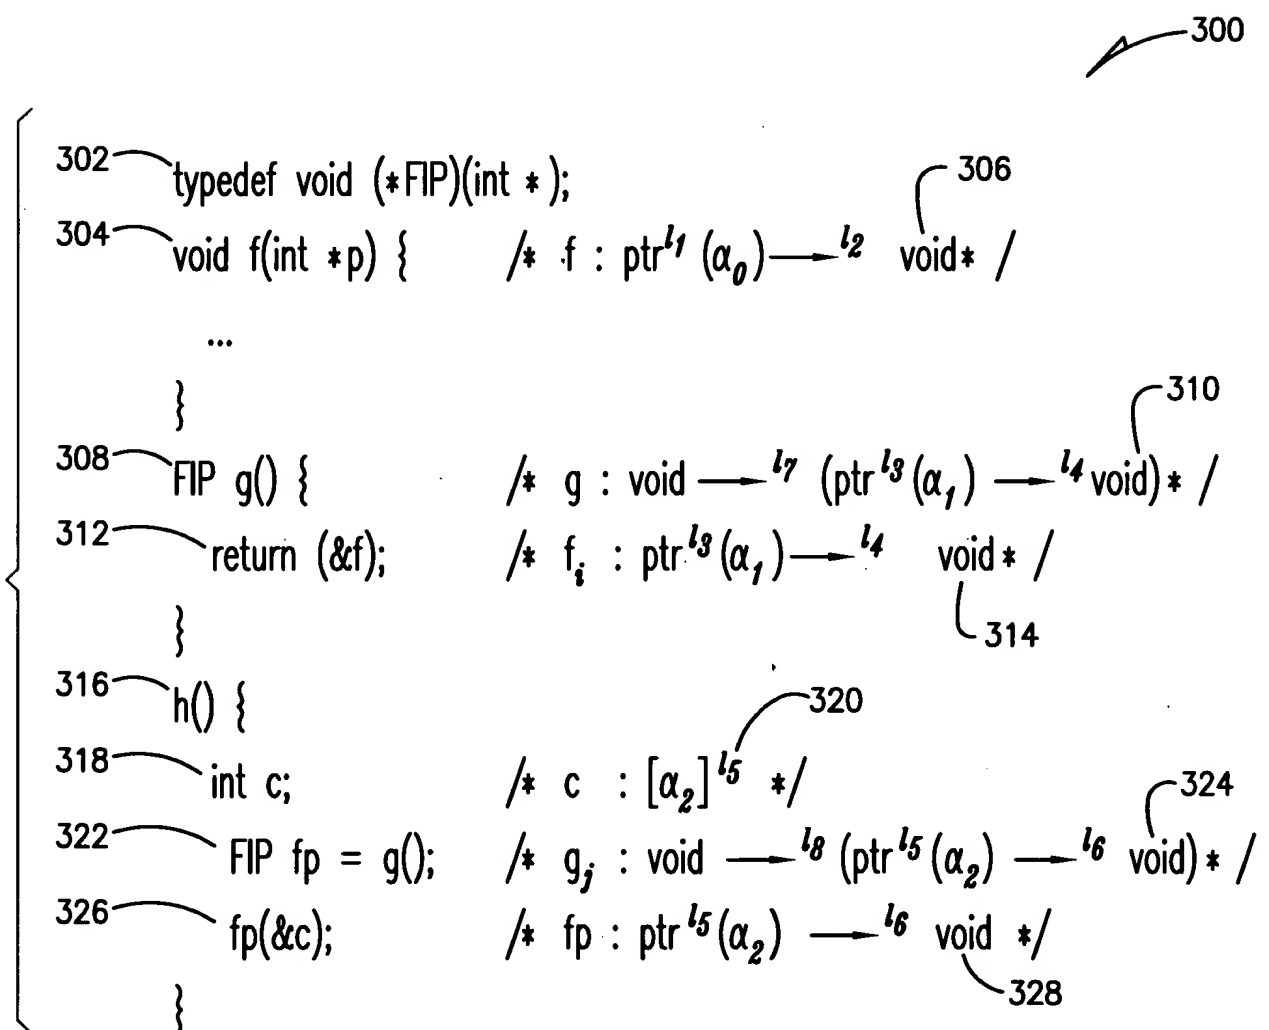 300
302 typedef void (*FIP)(int *); 306
304 void f(int *p) { /* f : ptr^l₁ (α₀) → ^l₂ void* /
...
}
310
308 FIP g() { /* g : void → ^l₇ (ptr^l₃(α₁) → ^l₄ void)* /
312 return (&f); /* fᵢ : ptr^l₃(α₁) → ^l₄ void* /
} 314
316 h() { 320
318 int c; /* c : [α₂]^l₅ */ 324
322 FIP fp = g(); /* gⱼ : void → ^l₈ (ptr^l₅(α₂) → ^l₆ void)* /
326 fp(&c); /* fp : ptr^l₅(α₂) → ^l₆ void */
} 328